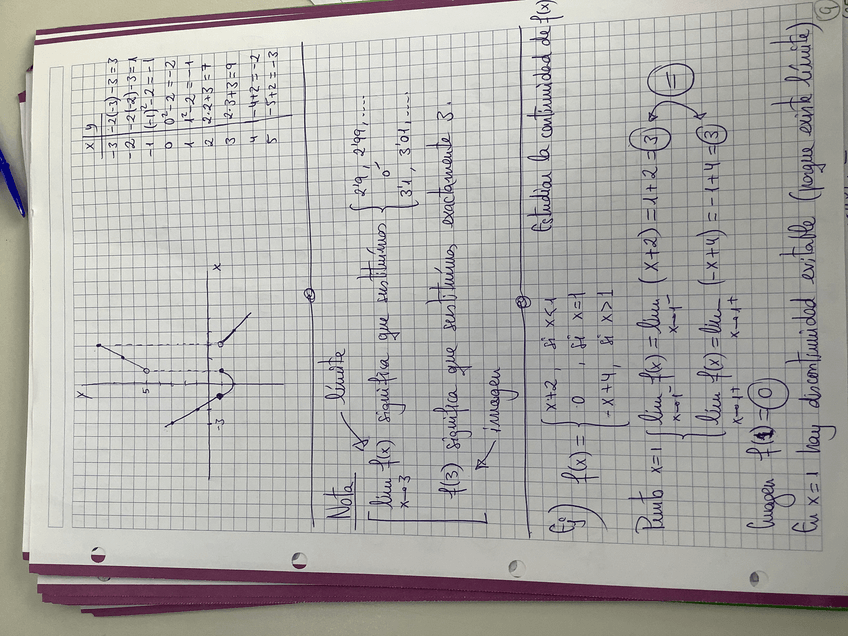 x | y
-3 | -2(-3)-3=3
-2 | -2(-2)-3=1
-1 | (-1)²-2=-1
0 | 0²-2=-2
1 | 1²-2=-1
2 | 2·2+3=7
3 | 2·3+3=9
4 | -4+2=-2
5 | -5+2=-3
y
x
5
-3
Nota
límite
lím f(x) significa que sustituimos { 2'9, 2'99, ....
x→3
ó
3'1, 3'01, ....
f(3) significa que sustituimos exactamente 3.
imagen
Ej) f(x) = { x+2, si x<1
0, si x=1
-x+4, si x>1
Estudiar la continuidad de f(x)
Punto x=1 { lím f(x) = lím (x+2) = 1+2 = 3
x→1⁻ x→1⁻
=
lím f(x) = lím (-x+4) = -1+4 = 3
x→1+ x→1+
Imagen f(1) = 0
En x=1 hay discontinuidad evitable (porque existe límite)
9